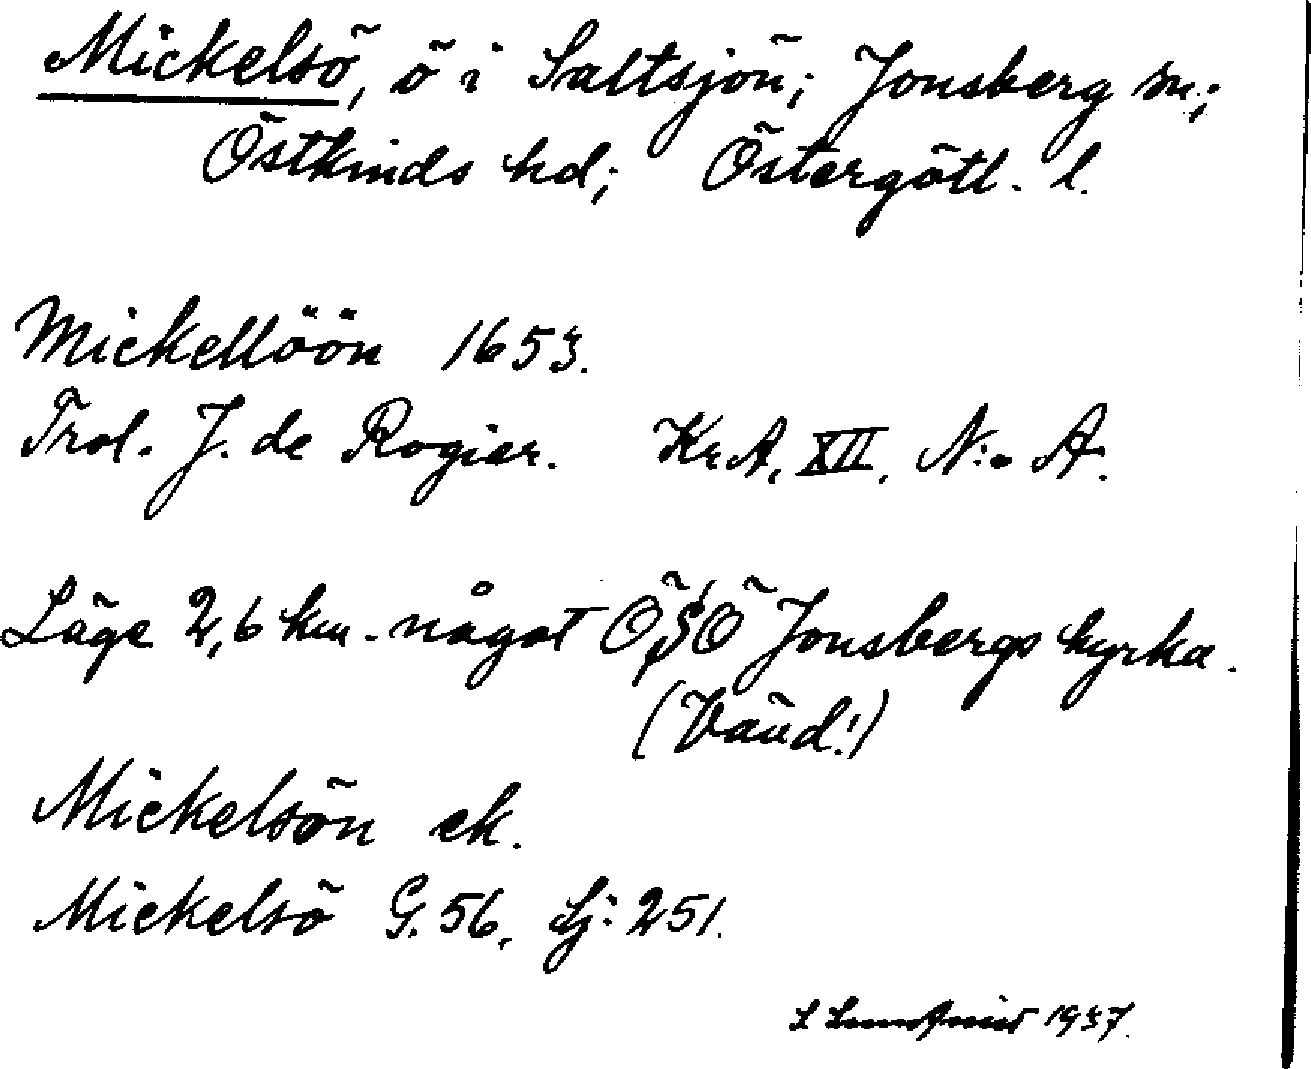 Mickelsö, ö i Saltsjön; Jonsberg sn;
Östkinds hd; Östergötl. l.
Mickellöön 1653.
Trol. J. de Rogier. KrA, XII, N:o A.
Läge 2,6 km. något ÖSÖ Jonsbergs kyrka.
(Vänd!)
Mickelsön ek.
Mickelsö G. 56, Sj: 251.
S Lundqvist 1937.